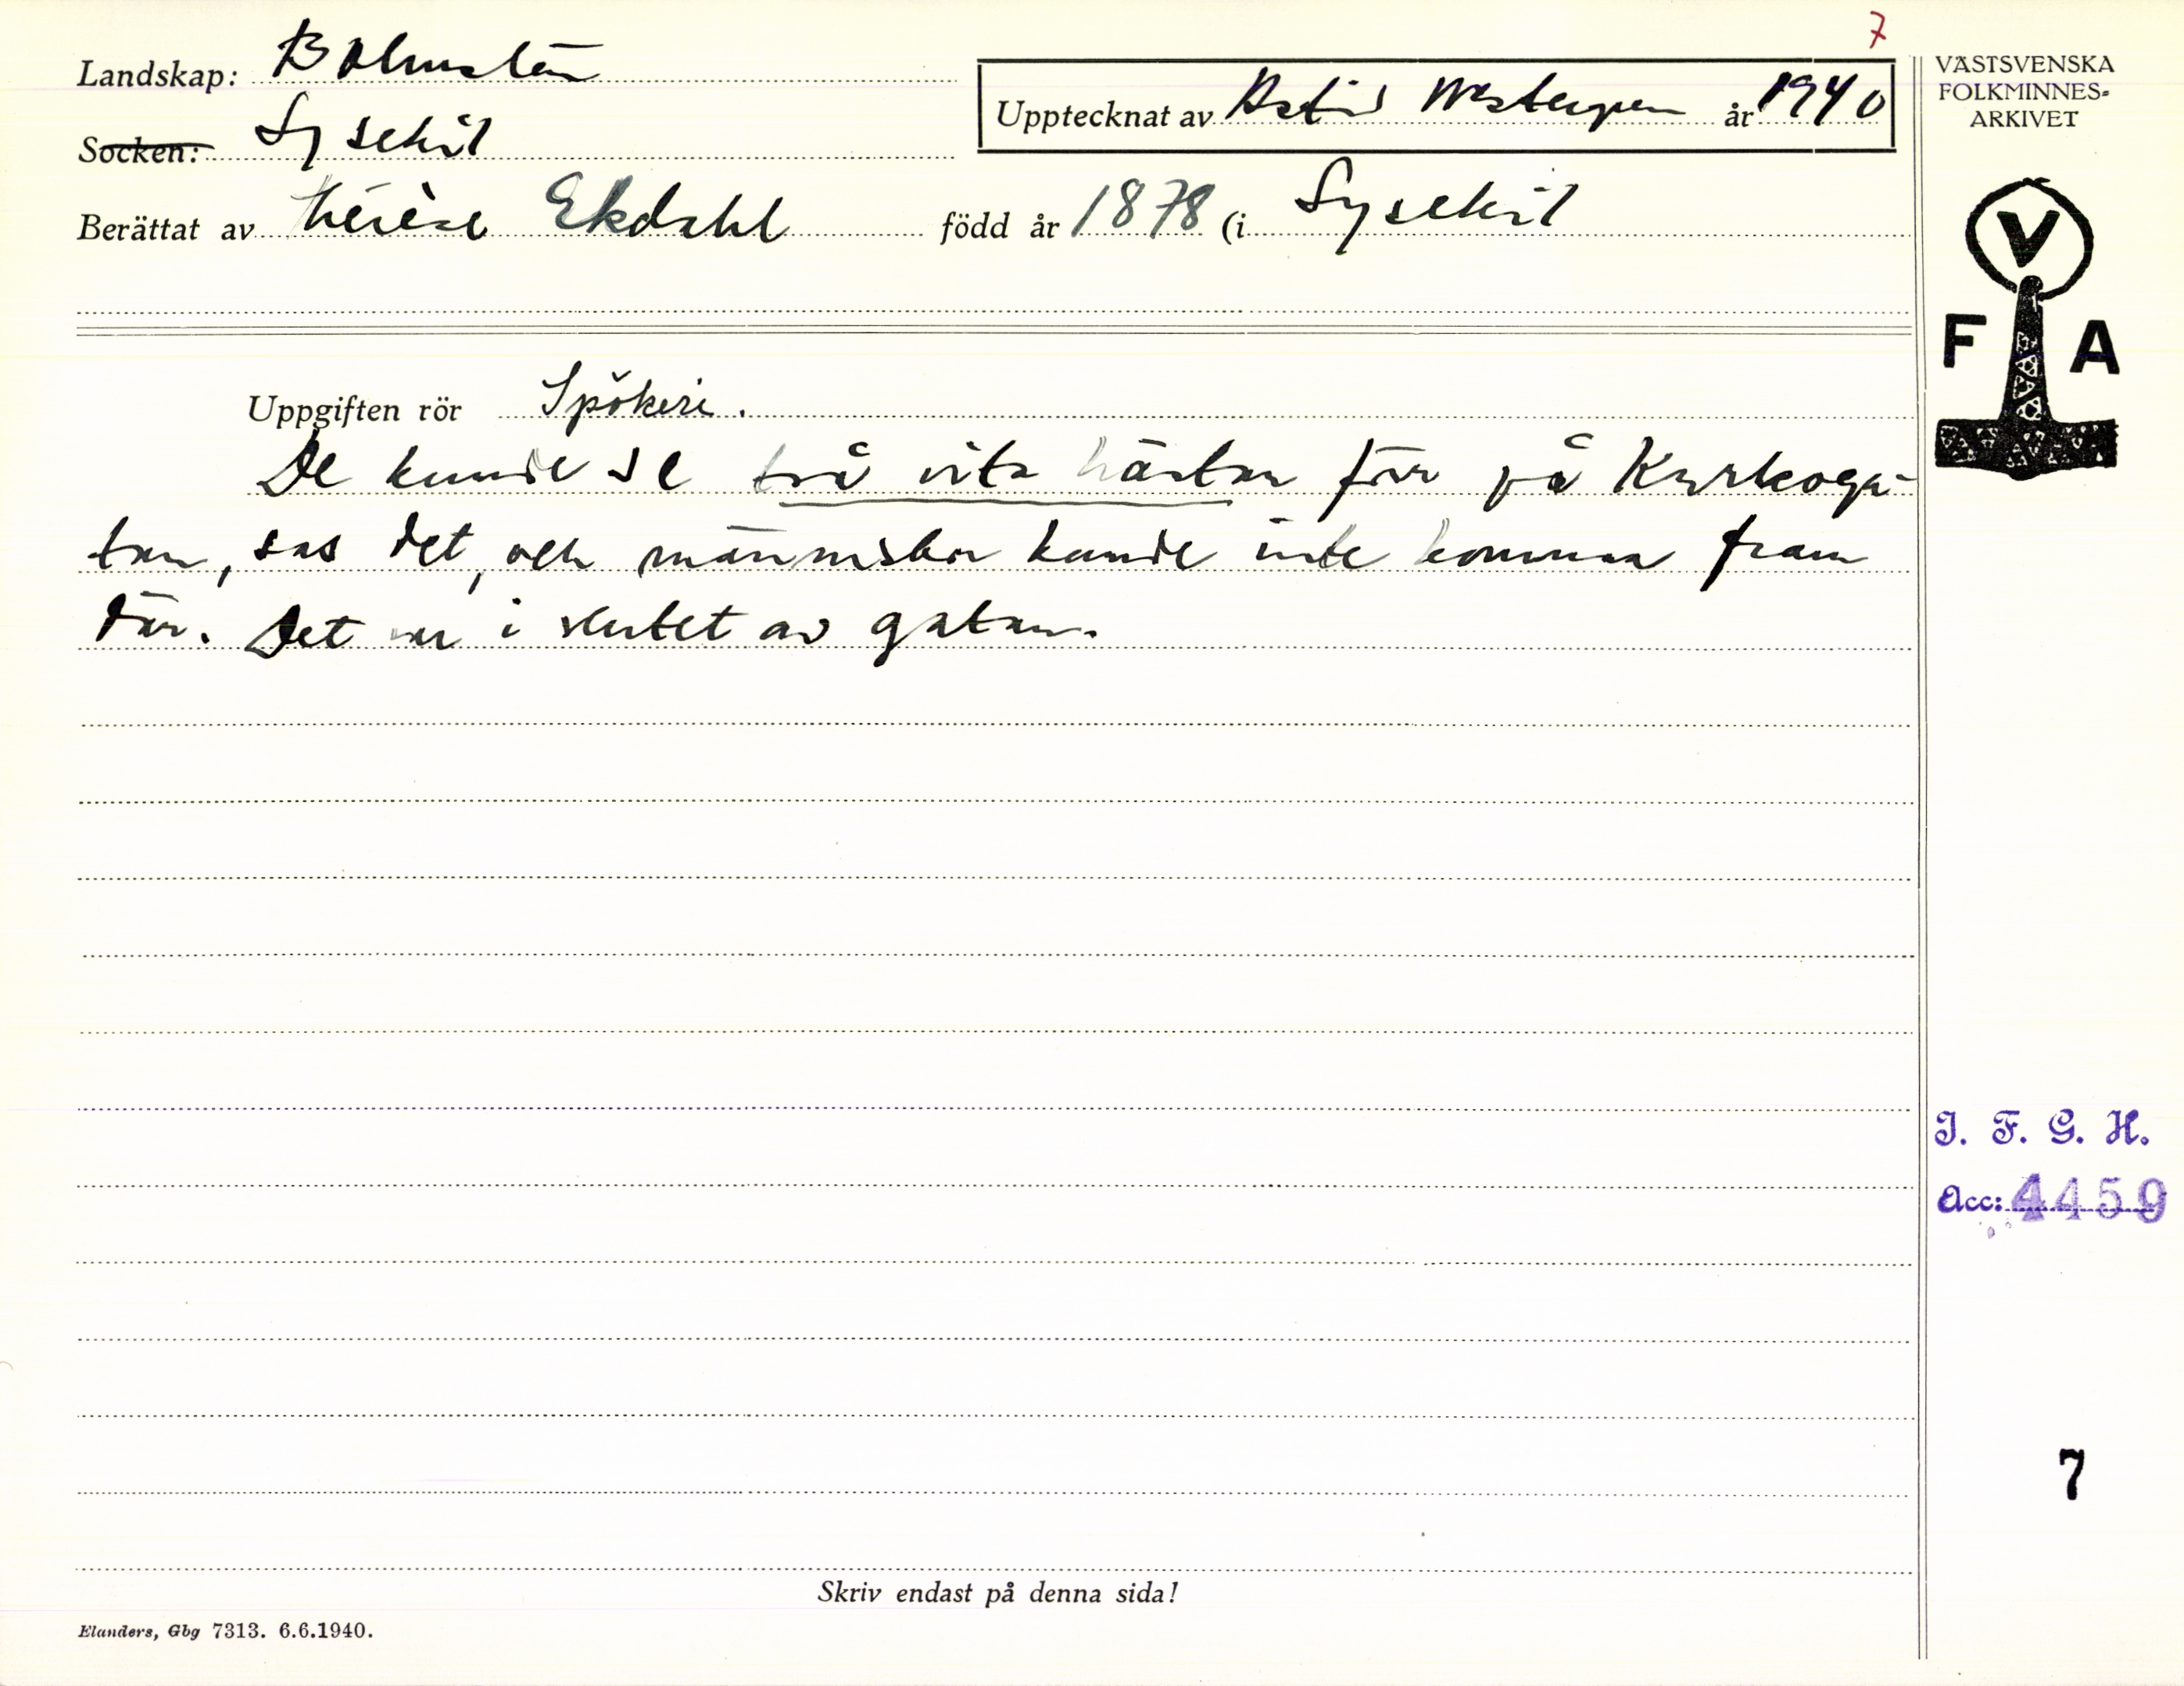 7
Landskap: Bohuslän
Socken: Lysekil
Upptecknat av Astrid Westergren år 1940
Berättat av Thérèse Ekdahl född år 1878 (i Lysekil
VÄSTSVENSKA
FOLKMINNES-
ARKIVET
V
F A
Uppgiften rör Spökeri.
De kunde se två vita hästar förr på Kyrkoga-
tan, sas det, och människor kunde inte komma fram
där. Det var i slutet av gatan.
I. F. G. H.
Acc: 4459
7
Skriv endast på denna sida!
Elanders, Gbg 7313. 6.6.1940.